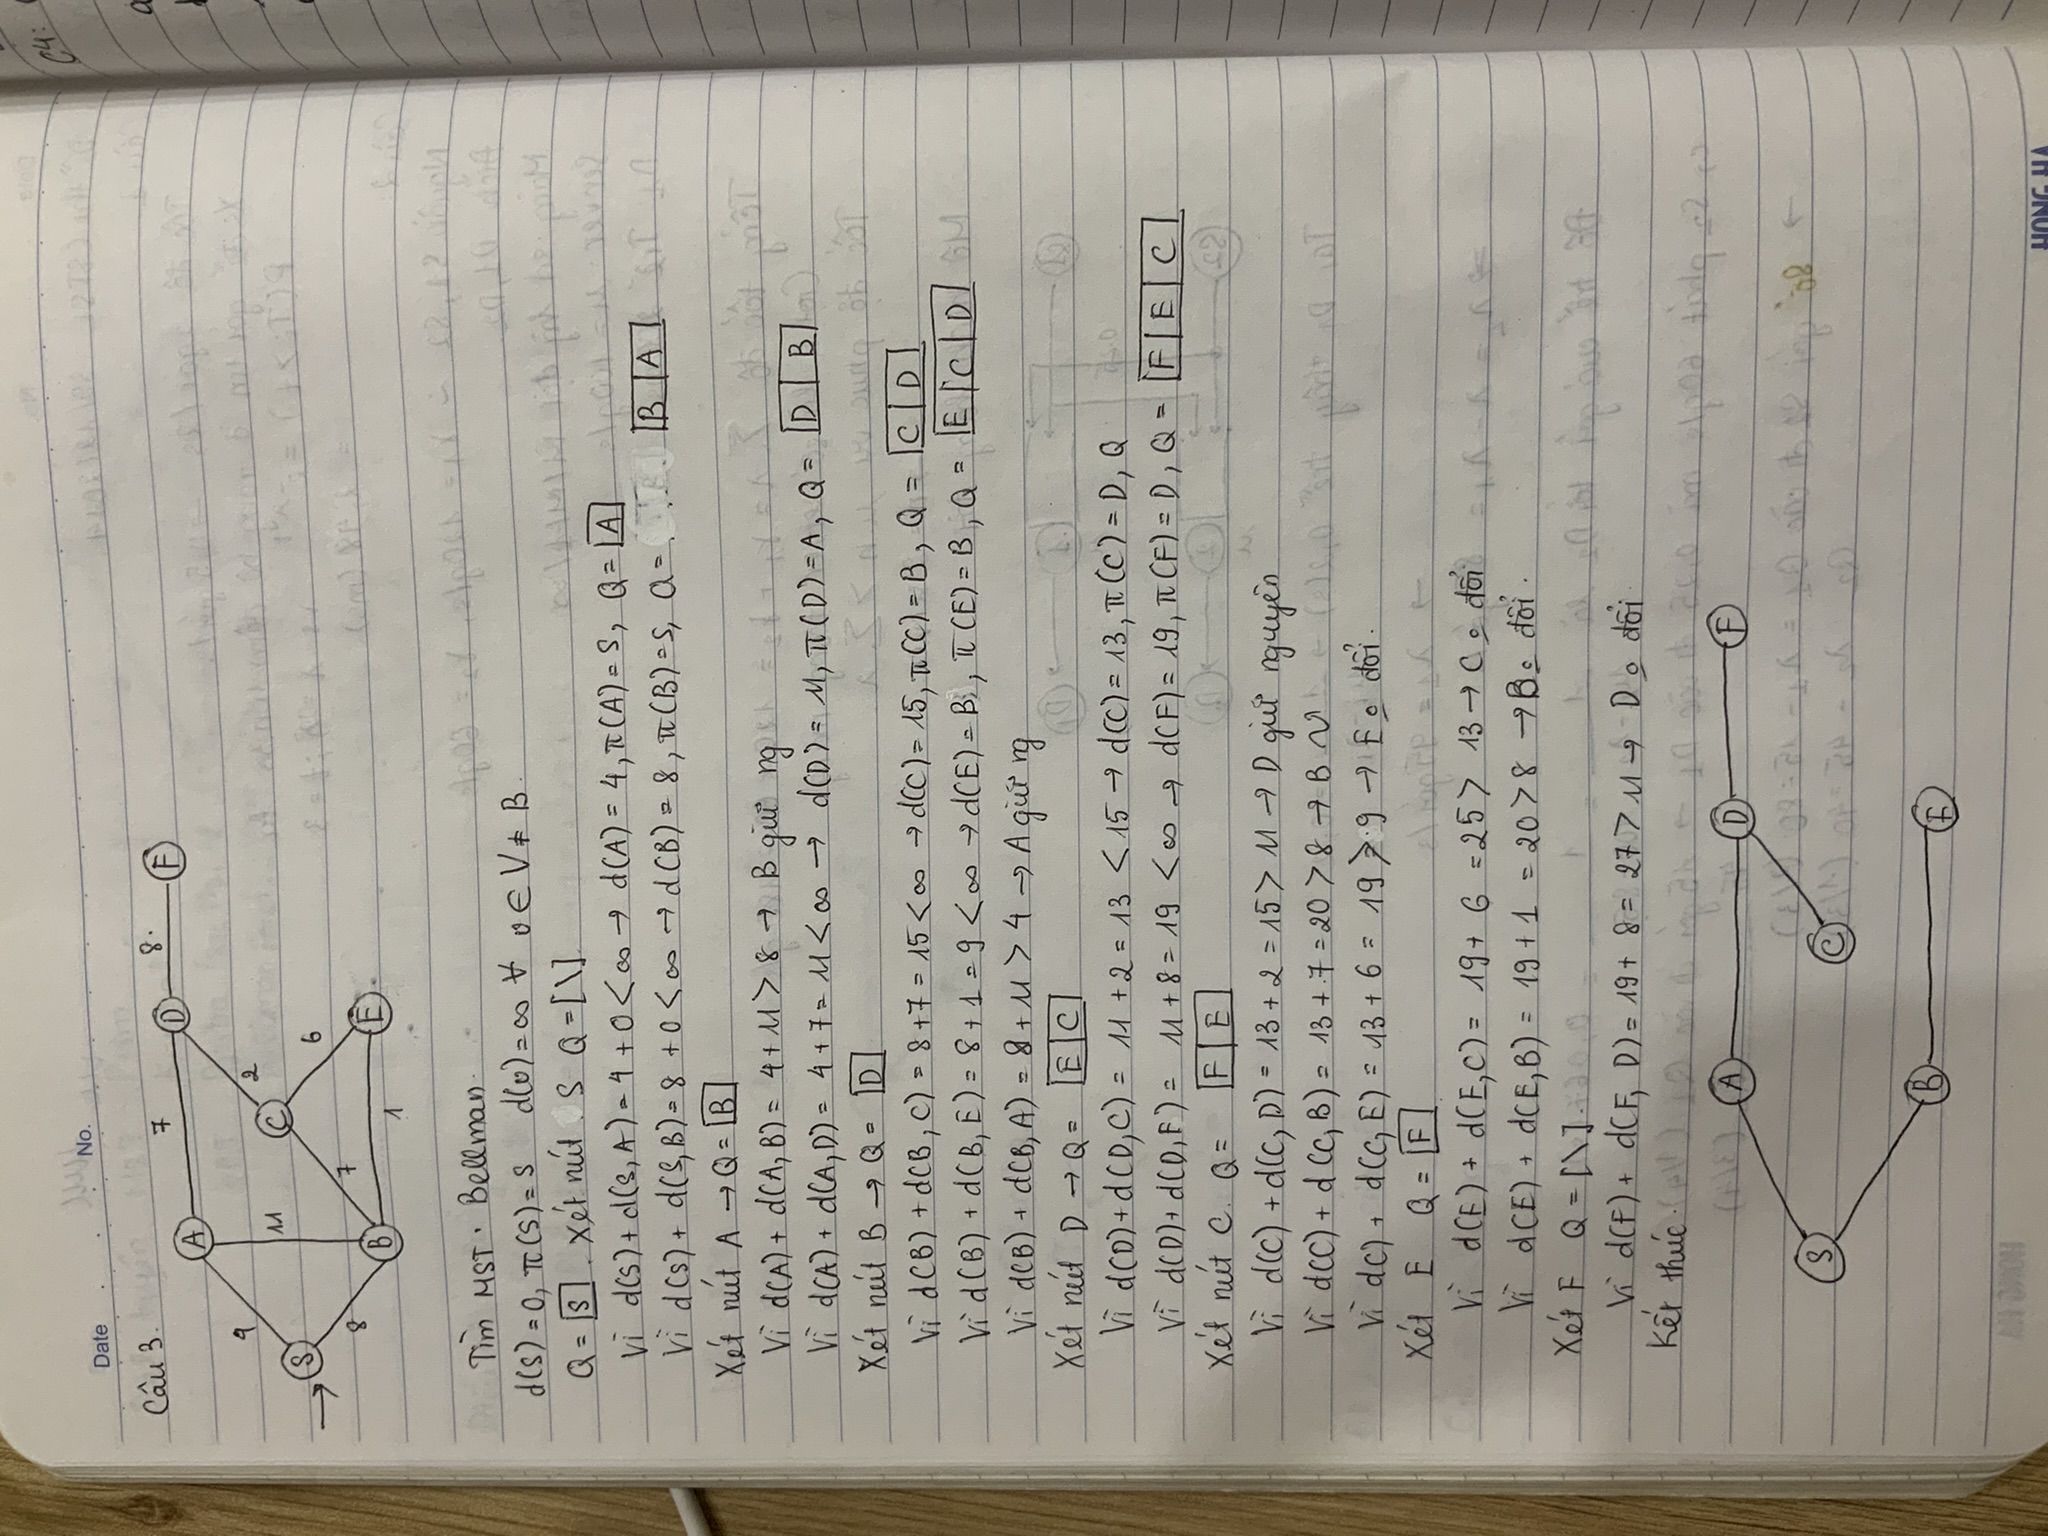 Date No.
Câu 3.
A 7 D 8. F
4 11 C 2
S 6
8 B 7 1 E
Tìm MST. Bellman.
d(S)=0, π(S)=S d(v)=∞ ∀ v∈V≠B.
Q= S. Xét nút S Q=[\]
Vì d(S)+d(S,A)=4+0<∞→d(A)=4,π(A)=S, Q= A
Vì d(S)+d(S,B)=8+0<∞→d(B)=8,π(B)=S, Q= B | A
Xét nút A→Q= B
Vì d(A)+d(A,B)=4+11>8→B giữ ng
Vì d(A)+d(A,D)=4+7=11<∞→d(D)=11,π(D)=A, Q= D | B
Xét nút B→Q= D
Vì d(B)+d(B,C)=8+7=15<∞→d(C)=15,π(C)=B, Q= C | D
Vì d(B)+d(B,E)=8+1=9<∞→d(E)=B, π(E)=B, Q= E | C | D
Vì d(B)+d(B,A)=8+11>4→A giữ ng
Xét nút D→Q= E | C
Vì d(D)+d(D,C)=11+2=13<15→d(C)=13,π(C)=D, Q
Vì d(D)+d(D,F)=11+8=19<∞→d(F)=19,π(F)=D, Q= F | E | C
Xét nút C. Q= F | E
Vì d(C)+d(C,D)=13+2=15>11→D giữ nguyên
Vì d(C)+d(C,B)=13+7=20>8→B
Vì dC)+d(C,E)=13+6=19>9→E đổi.
Xét E Q= F
Vì d(E)+d(E,C)=19+6=25>13→C đổi
Vì d(E)+d(E,B)=19+1=20>8→B đổi.
Xét F Q=[\].
Vì d(F)+d(F,D)=19+8=27>11→D đổi
Kết thúc.
A D F
S C
B E
HONG HA
C4: